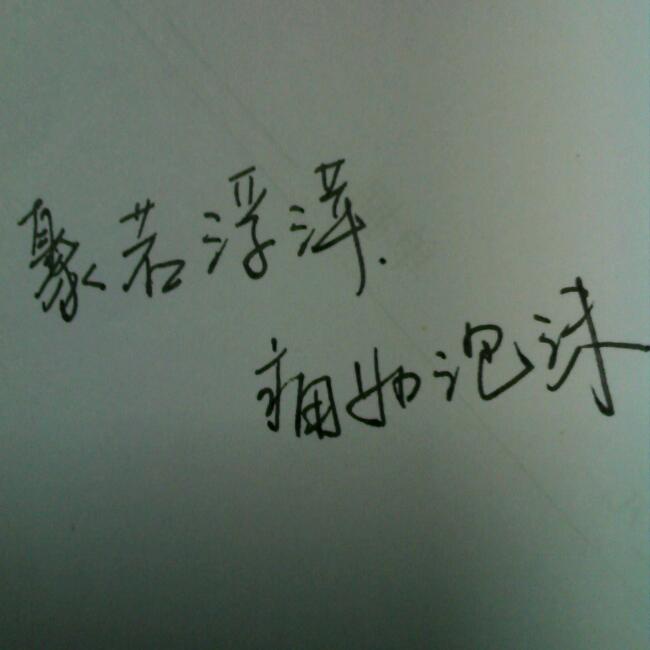 聚若浮萍.
痛如泡沫